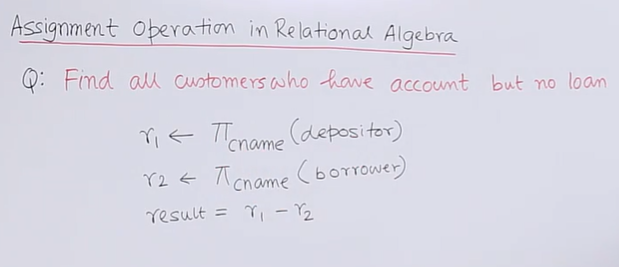 Assignment Operation in Relational Algebra
Q: Find all customers who have account but no loan
r₁ ← π cname (depositor)
r2 ← π cname (borrower)
result = r₁ - r₂